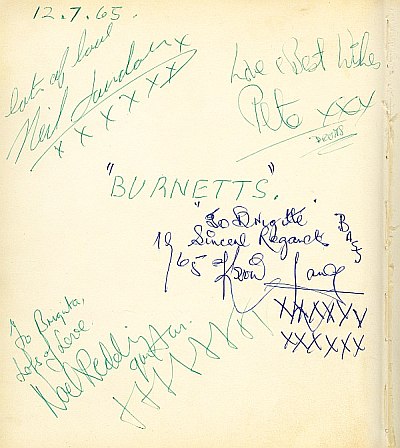 12.7.65.
lots of love
Neil Landon x
x x x x x x
Love & Best Wishes
Pete xxx
DRUMS
"BURNETTS".
"To Brigitte.
Sincere Regards
BASS
19
65
Kevin Lang
XXXXXX
XXXXXX
To Brigita,
Lots of Love.
Noel Redding
guitar.